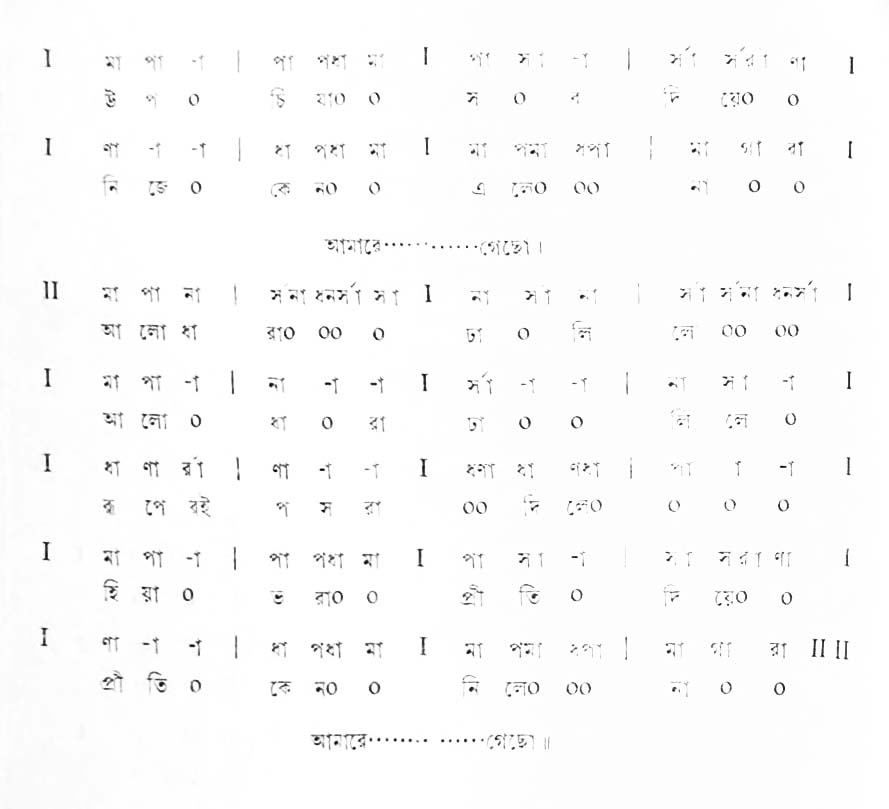 I মা পা -া | পা পধা মা I পা র্সা -া | র্সা র্সর্রা ণা I
উ প ০ চি যা০ ০ স ০ ব দি য়ে০ ০
I ণা -া -া | ধা পধা মা I মা পমা ধপা | মা গা রা I
নি জে ০ কে ন০ ০ এ লে০ ০০ না ০ ০
আমারে············গেছো।
II মা পা না | র্সনা ধনর্সা র্সা I না র্সা না | র্সা র্সনা ধনর্সা I
আ লো ধা রা০ ০০ ০ ঢা ০ লি লে ০০ ০০
I মা পা -া | না -া -া I র্সা -া -া | না র্সা -া I
আ লো ০ ধা ০ রা ঢা ০ ০ লি লে ০
I ধা ণা র্রা | ণা -া -া I ধণা ধা ণধা | পা া -া I
রূ পে রই প স রা ০০ দি লে০ ০ ০ ০
I মা পা -া | পা পধা মা I পা র্সা -া | র্সা র্সর্রা ণা I
হি য়া ০ ভ রা০ ০ প্রী তি ০ দি য়ে০ ০
I ণা -া -া | ধা পধা মা I মা পমা ধপা | মা গা রা II II
প্রী তি ০ কে ন০ ০ নি লে০ ০০ না ০ ০
আমারে·············গেছো॥